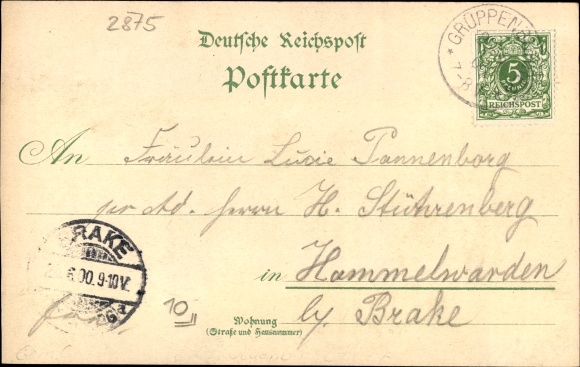 2875
Deutsche Reichspost
Postkarte
* GRÜPPENB
7-8
5
REICHSPOST
An Fräulein Lucie Tannenborg
pr. Ad. Herrn H. Stührenberg
in Hammelwarden
by Brake
BRAKE
6.00.9-10V.
10
Wohnung
(Straße und Hausnummer)